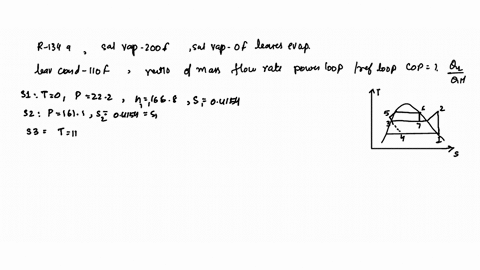 R-134a, sat vap-200f, sat vap-0f leaves evap.
leav cond-110f, ratio of mass flow rate power loop /ref loop COP=? QL/QH
S1: T=0, P=22.2, h1=166.8, S1=0.4154
S2: P=161.1, S2=0.4154=S1
S3= T=11
T
5 6 2
3 7
4 1
S